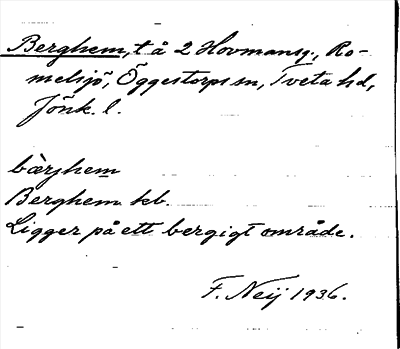 Berghem, t å 2 Hovmansg., Ro-
melsjö, Öggestorps sn, Tveta hd,
Jönk. l.
bærjhem
Berghem kb.
Ligger på ett bergigt område.
F. Neij 1936.